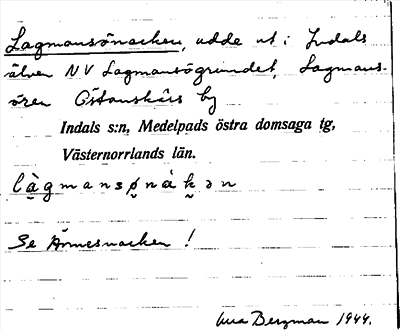 Lagmansönacken, udde ut i Indals
älven NV Lagmansögrundet, Lagmans-
ören Östanskärs by
Indals s:n, Medelpads östra domsaga tg,
Västernorrlands län.
làgmansǿnàkən
Se Ärnesnacken!
Bergman 1944.